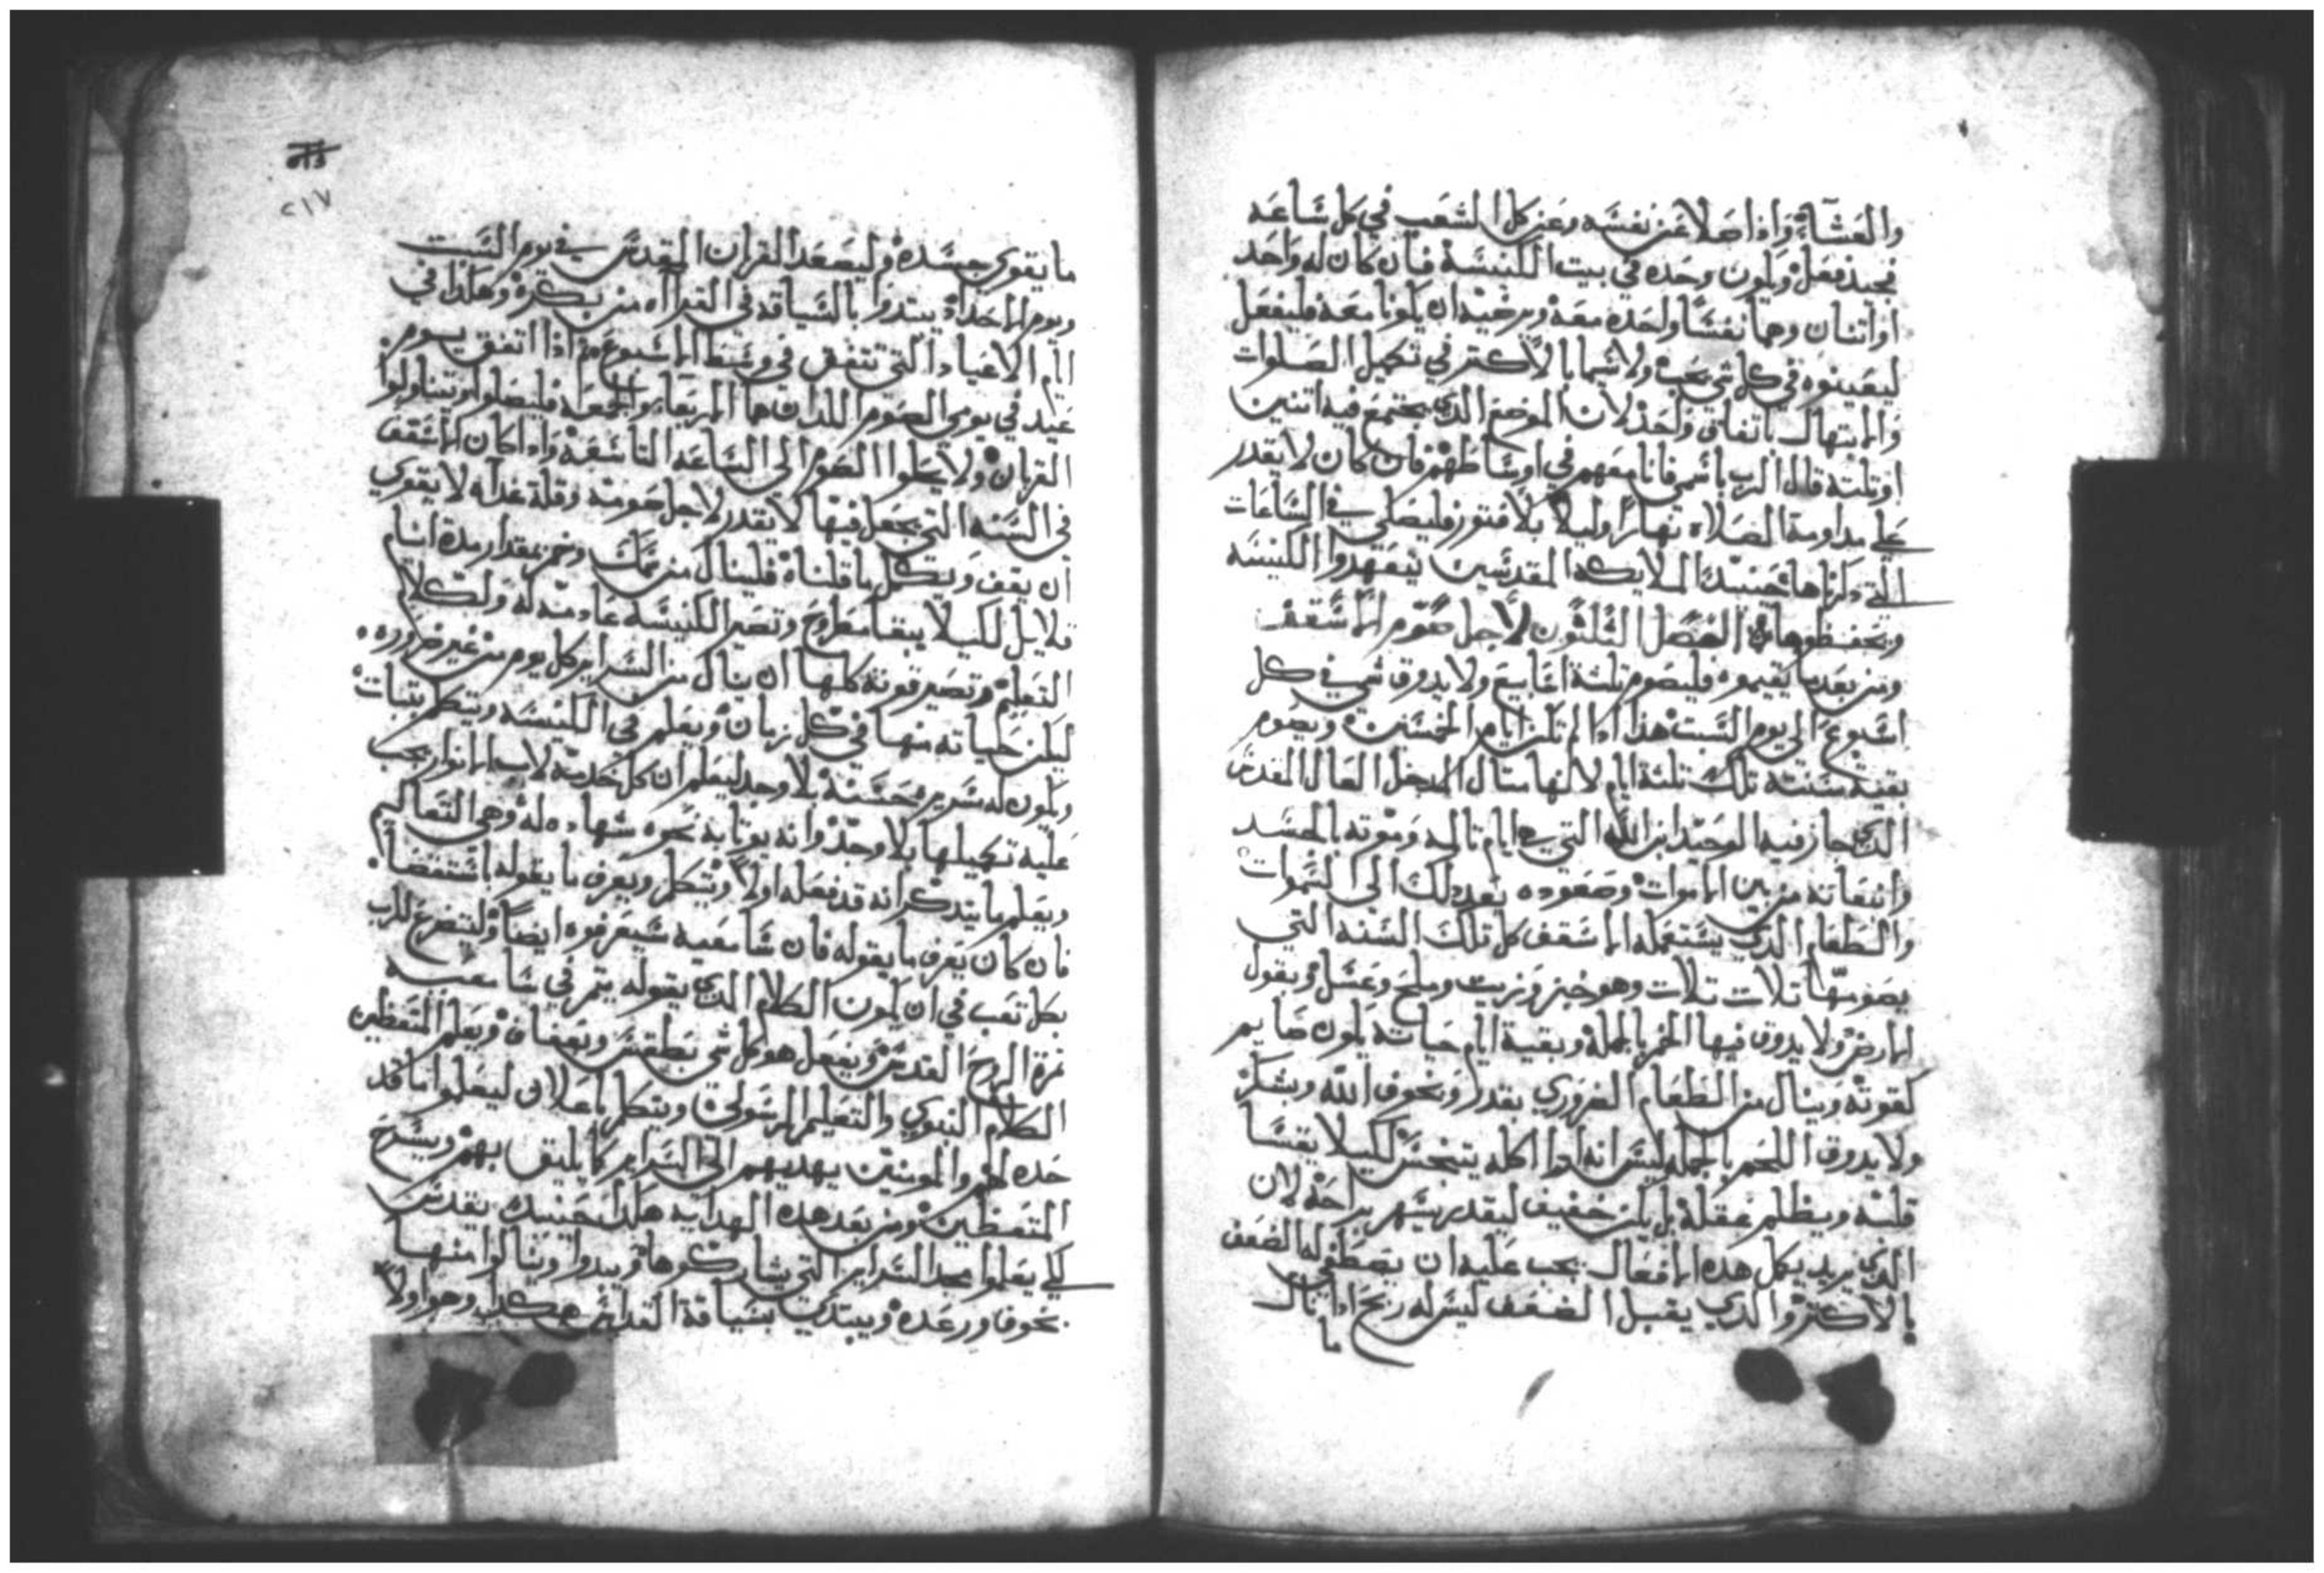 والعشاء واذا صلا عن نفسه وعن كل الشعب في كل ساعه
فجيد فعل ويكون وحده في بيت الكنيسة فان كان له واحد
او اتنان وهما نفسا واحده معه ومرضيه ان يكونا معه فليفعل
ليعينوه في كل شي يحب ولا شيما بالاكتر في تكميل الصلوات
والابتهال باتفاق واحد لان الموضع الدي يجتمع فيه اتنين
او تلتة قال الرب باسمي فانا معهم في اوساطهم فان كان لا يقدر
علي مداومة الصلاه نهارا وليلا بلا فتور فليصلي في الساعات
التي دكرناها حينيد الملايكه المقدسين يتعهدوا الكنيسه
ويحفظوها الفصل التلتون لاجل صوم الاسقف
ومن بعد ما يقيموه فليصوم تلتة اسابيع ولا يدوق شي في كل
اسبوع الي يوم السبت هدا ادا لم تكن ايام الخمسين ويصوم
بقية سنته تلك تلتة ايام لانها متال المدخل العال المقدس
الدي جاز فيه الوحيد ابن الله التي هي ايام تالمه وموته بالجسد
وانبعاته من بين الاموات وصعوده بعد دلك الى السموات
والطعام الدي يستعمله الاسقف كل تلك السنه التي
يصومها تلات تلات وهو خبز وزيت وملح وعسل وبقول
الارض ولا يدوق فيها الخمر بالجملة وبقية ايام حياته يكون صايم
كقوته وينال من الطعام الضروري بقدر وبخوف الله ويشكر
ولا يدوق اللحم بالجمله ليس انه ادا اكله يتنجس لكيلا يقسا
قلبه ويظلم عقله بل يكن خفيف ليقدر يسهر براحه لان
الدي يريد يكمل هده الافعال يجب عليه ان يصطفي له الضعف
بالاكتر والدي يقبل الضعف ليس له ربح ادا نال
ما
٢١٧
ما يقوي جسده وليصعد القربان المقدس في يوم السبت
ويوم الاحد ويبتدوا بالسياقه في القراه من بكره وهكدا في
ايام الاعياد التي تتفق في وسط الاسبوع ادا اتفق يوم
عيد في يومي الصوم اللدان هما الاربعا والجمعه فليصلوا ويتناولوا
القربان ولا يحلوا الصوم الى الساعه التاسعة وادا كان الاسقف
في السنه التي يجعل فيها لا يقدر لاجل صومته وقلة غداه لا يقوي
ان يقف ويكمل ما قلناه فلينال من سمك وخمر بمقدار مدة ايام
قلايل لكيلا يبقا مطروح وتصير الكنيسه عادمته له ولكلام
التعليم وتصير قوته كلها ان ينال من السراير كل يوم من غير ضروره
ليكن حياته منها في كل زمان ويعلم في الكنيسه ويتكلم بتبات
ويكون له سريره حسنه بلا وجد ليعلم ان كل خدمة لاب الانوار يجب
عليه تكميلها بلا وجد وانه يوتا به نحوه شهاده له وهي التعاليم
ويعلم ما يتدكر انه قد فعله اولا ويتكل ويعرف ما يقوله باستقصا
فان كان يعرف ما يقوله فان سامعيه سيعرفوه ايضا وليتضرع للرب
بكل تعب في ان يكون الكلام الدي يقوله يتمر في سامعيه
تمرة الروح القدس ويفعل هو كل شي بطقس وبعفاف ويعلم المتعظين
الكلام النبوي والتعليم الرسولي ويتكلم باعلان ليعملوا ما قد
حده لهم والمومنين يهديهم الى السراير كما يليق بهم ويسرح
المتعظين ومن بعد هده الهدايه هكدا حينيد يقدس
لكي يعلموا مجد السراير التي يشاركوها ويبدوا وينالوا منها
بخوف ورعده ويبتدي بسياقة القداس هكدا وهو اولا